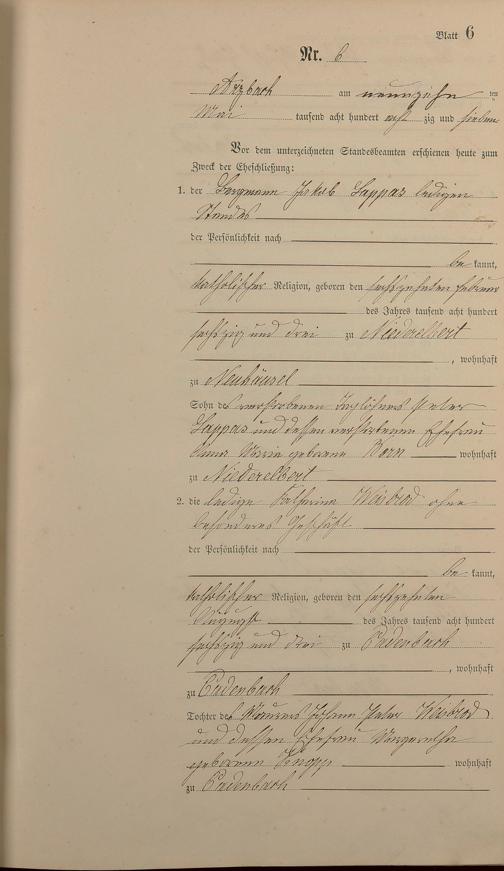 Blatt 6
Nr. 6
Arzbach am neunzehn ten
Mai tausend acht hundert acht zig und sieben
Vor dem unterzeichneten Standesbeamten erschienen heute zum
Zweck der Eheschließung:
1. der Bergmann Jakob Sappas ledigen
Standes
der Persönlichkeit nach
be kannt,
katholischer Religion, geboren den sechszehnten Februar
des Jahres tausend acht hundert
sechszig und drei zu Niederelbert
, wohnhaft
zu Neuhäusel
Sohn des verstorbenen Taglöhners Peter
Sappas und dessen verstorbenen Ehefrau
Anna Maria geborene Born wohnhaft
zu Niederelbert
2. die ledige Katharina Weisbrod ohne
besonderes Geschäft
der Persönlichkeit nach
be kannt,
katholischer Religion, geboren den sechszehnten
August des Jahres tausend acht hundert
sechszig und drei zu Cadenbach
, wohnhaft
zu Cadenbach
Tochter des Maurers Johann Peter Weisbrod
und dessen Ehefrau Margaretha
geborenen Knopp wohnhaft
zu Cadenbach